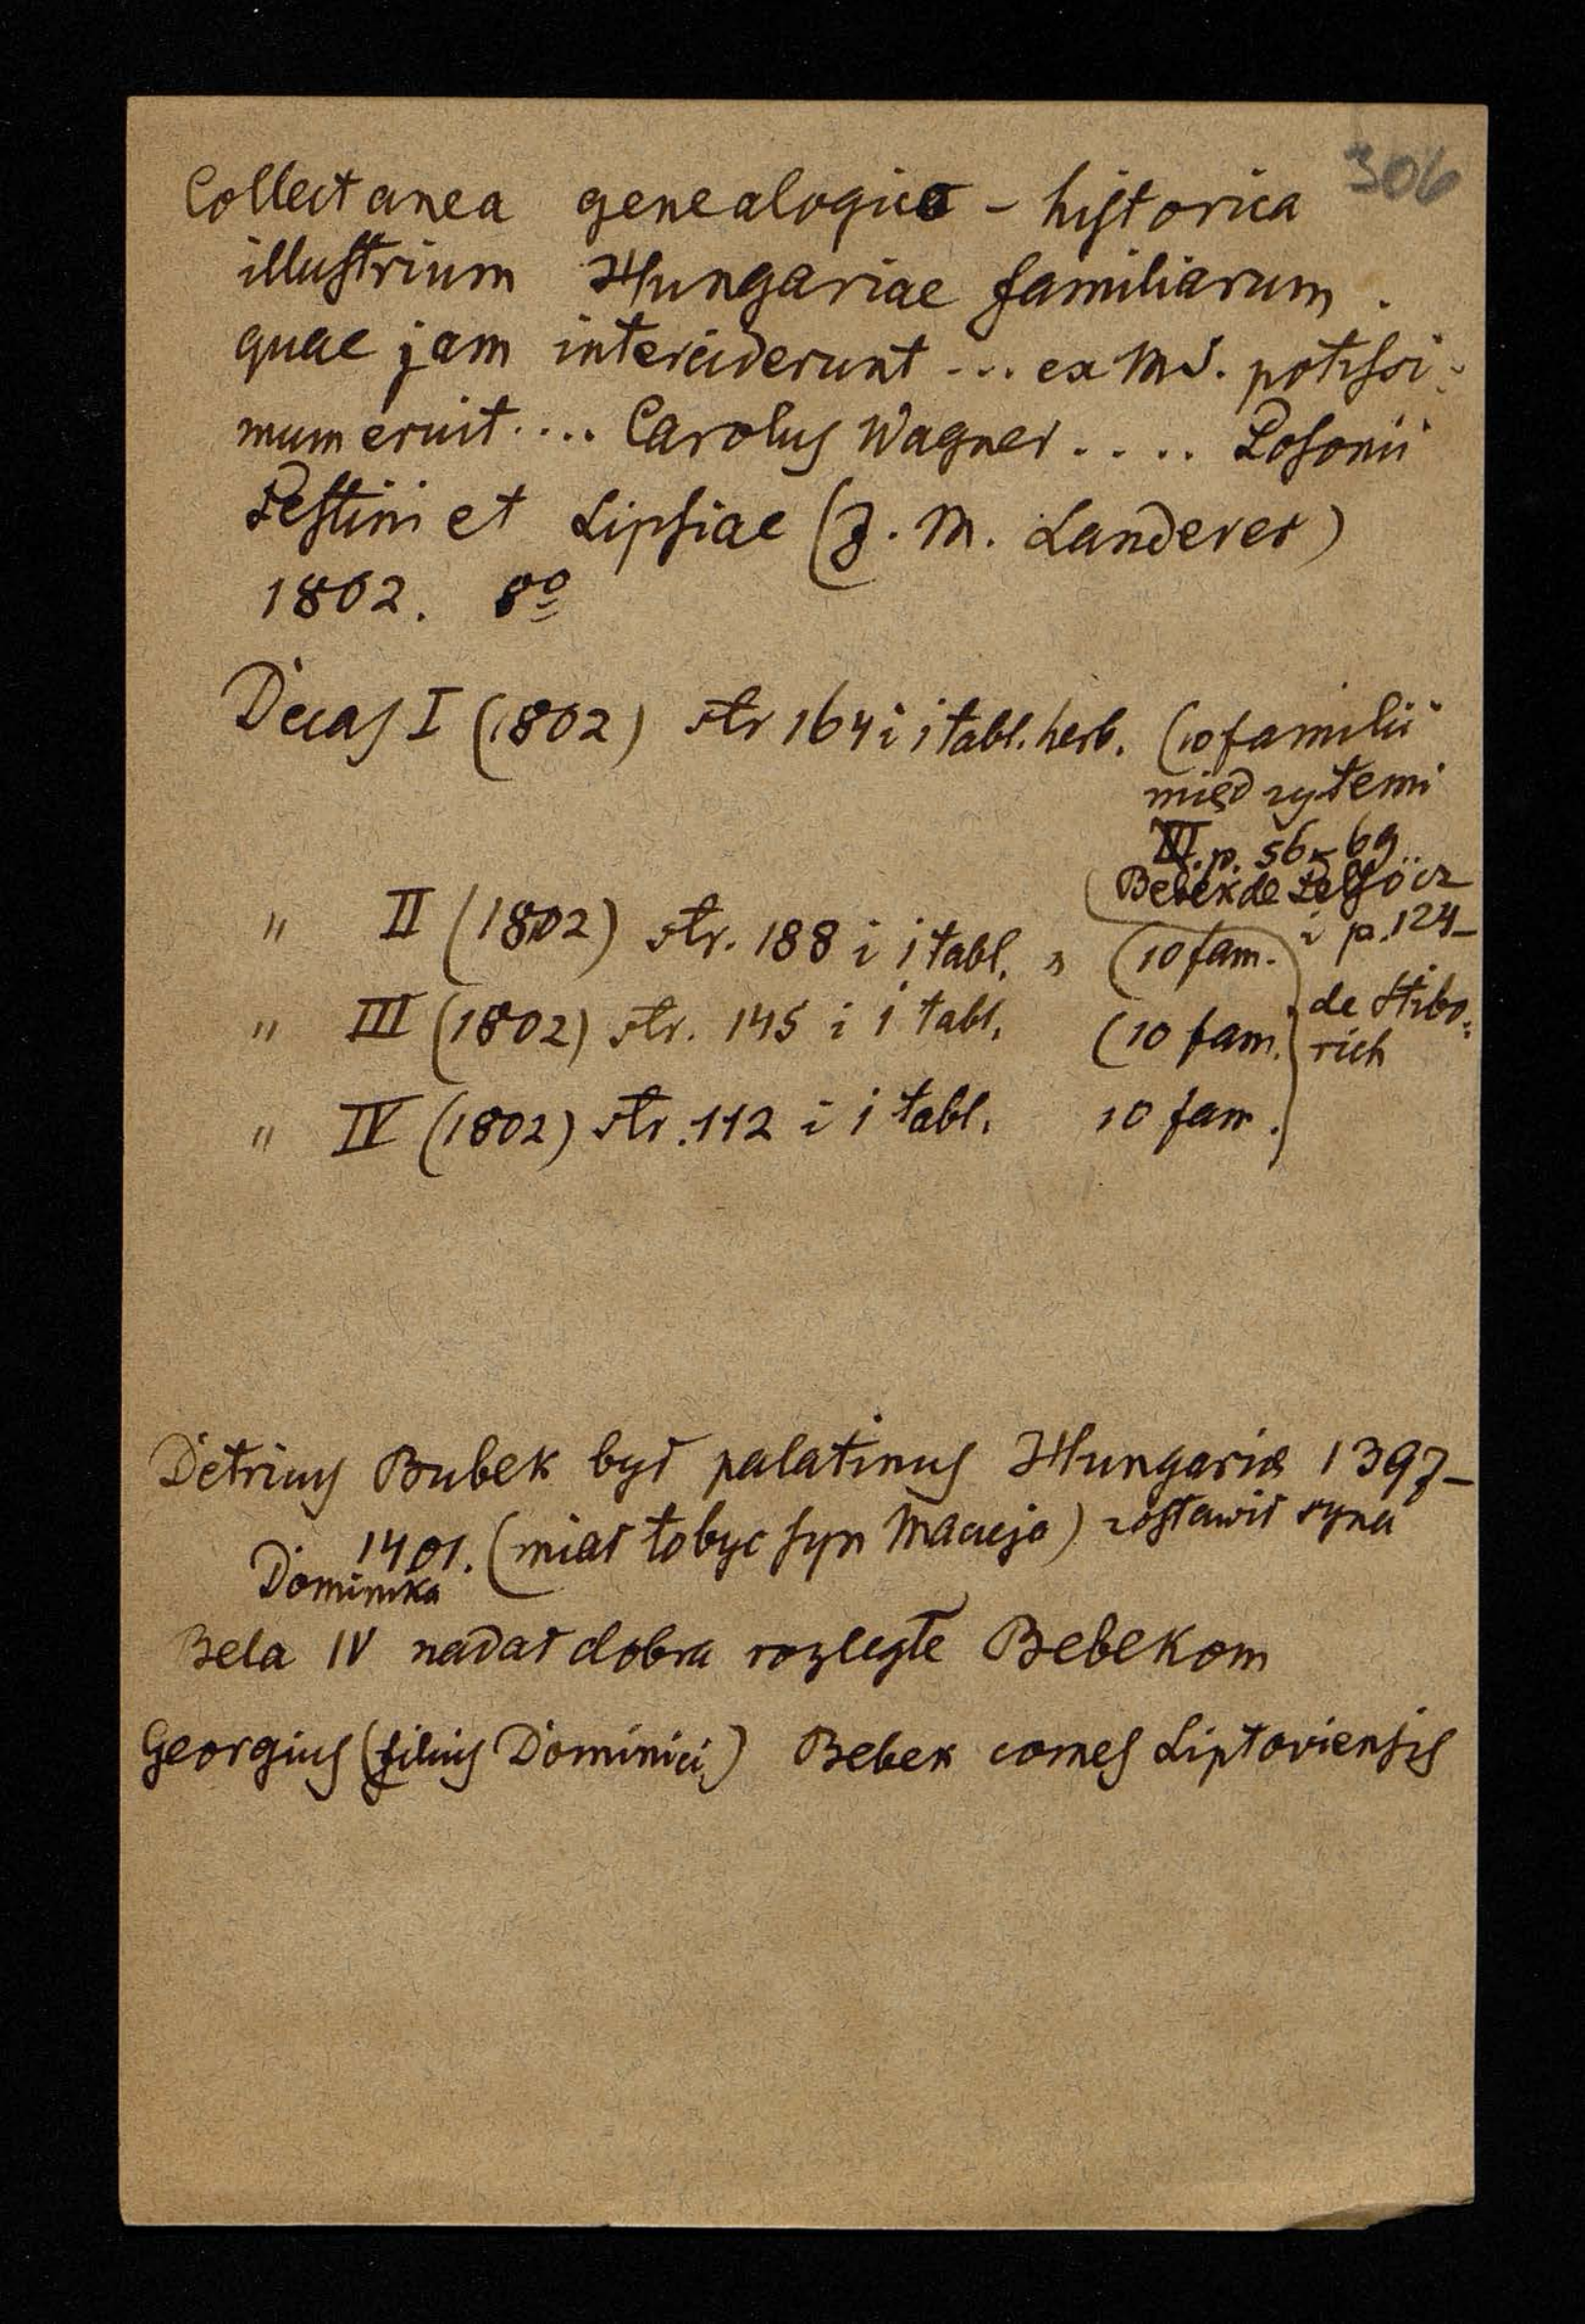 306
Collectanea genealogico - historica
illustrium Hungariae familiarum.
quae jam interciderunt ... ex MS. potissi-
mum eruit .... Carolus Wagner ..... Posonii
Pestini et Lipsiae (J. M. Landerer)
1802. 8º
Decas I (1802) str 164 i 1 tabl. herb. (10 familii
między temi
III. p. 56-69
Bebek de Pelsöcz
" II (1802) str. 188 i 1 tabl. " (10 fam. i p. 124-
" III (1802) str. 145 i 1 tabl. (10 fam. de Stibo-
rich
" IV (1802) str. 112 i 1 tabl. 10 fam.)
Detricus Bubek był palatinus Hungariae 1397-
1401. (miał to być syn Macieja) zostawił syna
Dominika
Bela IV nadał dobra rozległe Bebekom
Georgius (filius Dominici) Bebek comes Liptoviensis